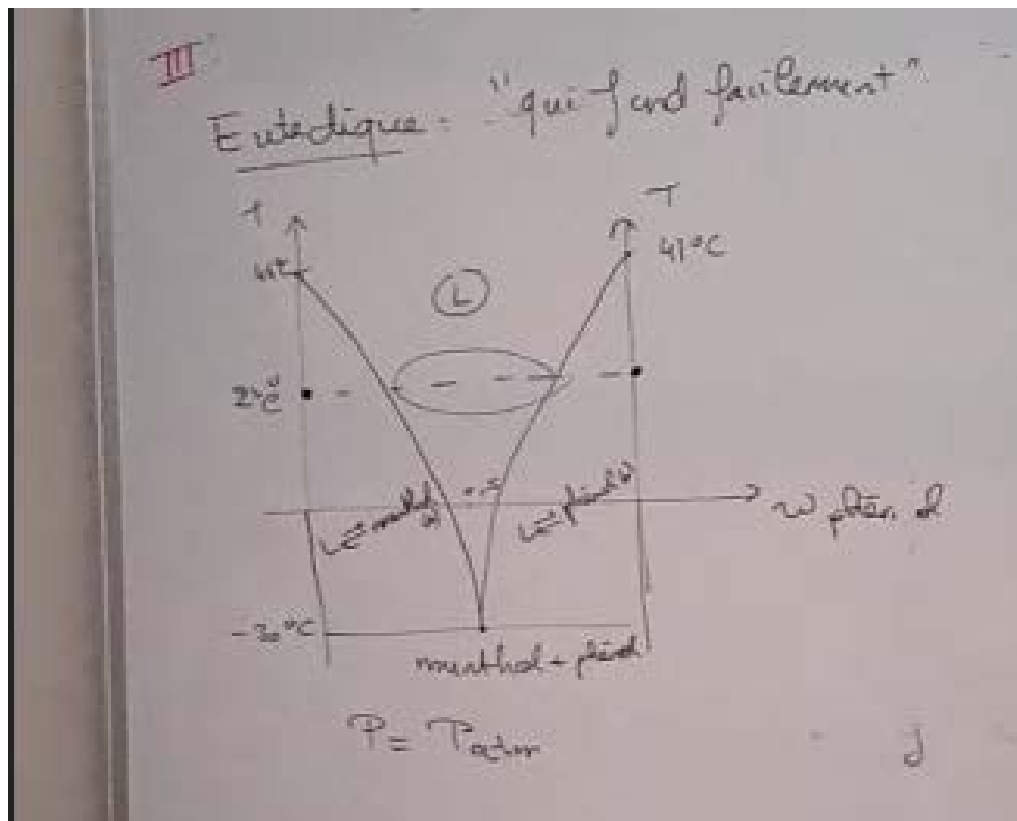 III
Eutectique = "qui fond facilement"
T T
41°C
L
25°C
L ⇌ phénol (s)
w phénol
-30°C
menthol + phénol
P = Patm